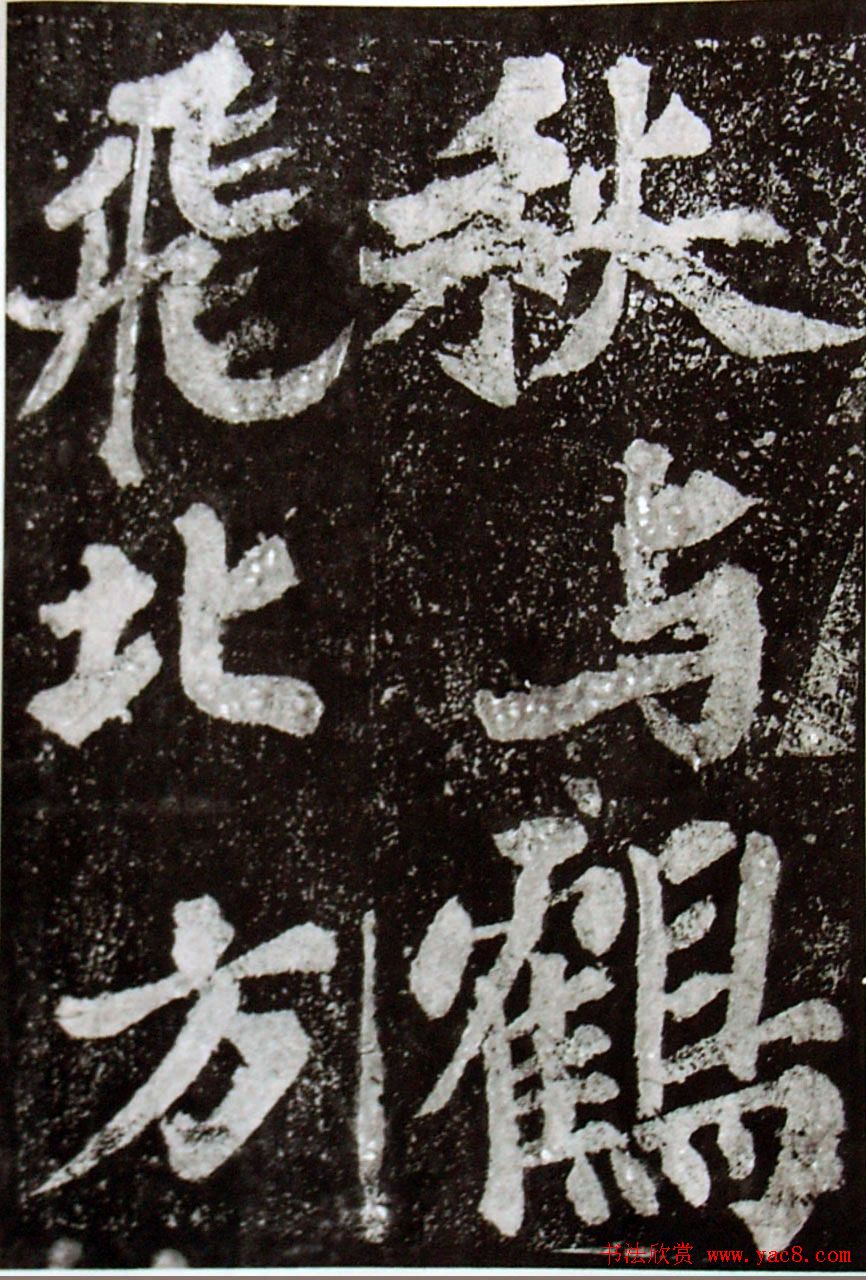 秋与鶴
飛北方
书法欣赏 www.yac8.com